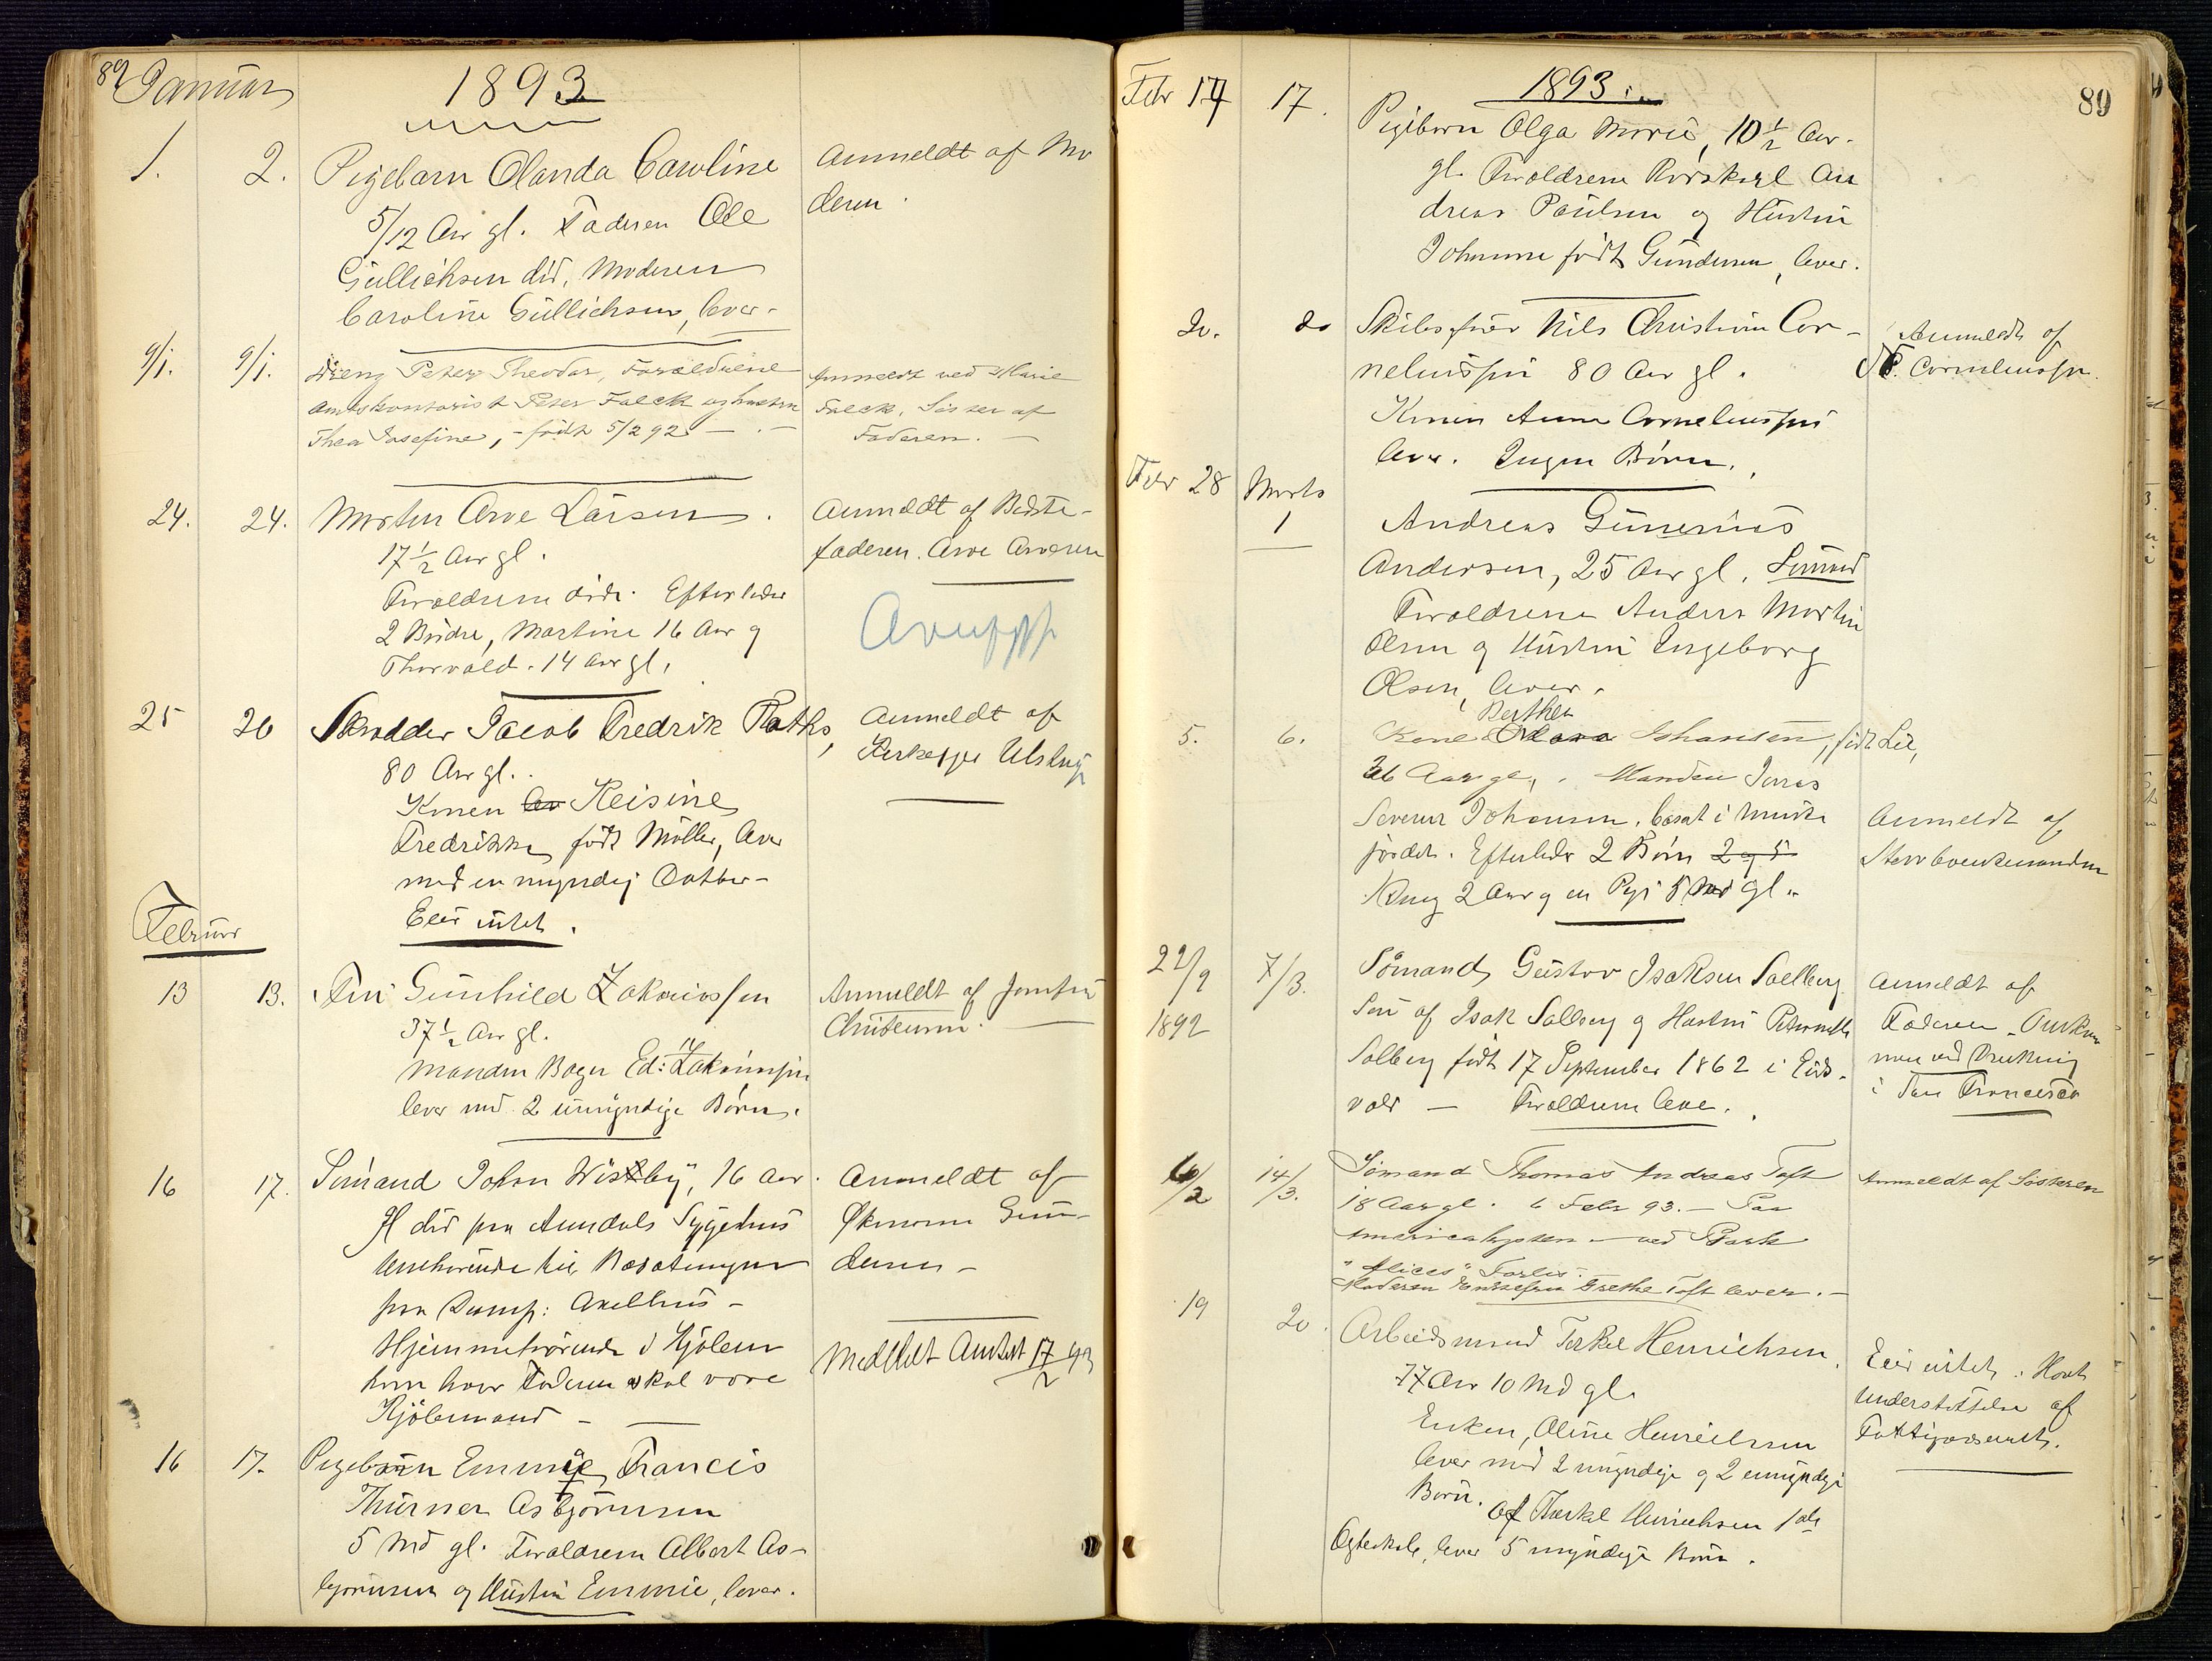 89 Januar
1893
1. 2. Pigebarn Olanda Caroline
5/12 Aar gl. Faderen Ole
Gullichsen död, Moderen
Caroline Gullichsen, lever.
Anmeldt af Mo
deren.
9/1. 9/1. Dreng Peter Theodor, Forældrene
Amtskontorist Peter Falck og hustru
Thea Josefine, - født 5/2 92 -
Anmeldt ved Marie
Falck, Søster af
Faderen. -
24. 24. Morten Arve Larsen.
17 1/2 Aar gl.
Forældrene døde. Efterlader
2 Brödre, Martine 16 Aar og
Thorvald. 14 Aar gl.
Anmeldt af Bedste-
faderen. Arve Arvesen
25 26 Skrædder Jacob Fredrik Raths,
80 Aar gl.
Konen Reisine
Fredrikke født Möller, lever
med en myndig Datter-
Eier intet.
Anmeldt af
Kirketjener Ulstrup
Februar
13 13. Fru Gunhild Zakariassen
37 1/2 Aar gl.
Manden Bager Ed: Zakariassen
lever med 2 umyndige Børn.
Anmeldt af Jomfru
Christensen.
16 17. Sömand John Wisby, 16 Aar
gl död paa Arendals Sygehus
henhørende til Besætningen
paa Damp: Axelhus -
Hjemmehørende i Kjøben
havn hvor Faderen skal være
Kjöbmand -
Anmeldt af
Økonom Gun-
dersen -
Meddelt Amtet 17/2 93
16 17. Pigebarn Emmie Francis
Thurner Asbjörnsen
5 Md gl. Forældrene Albert As-
bjørnsen og Hustru Emmie, lever.
Febr 14 17. 1893. 89
Pigebarn Olga Marie, 10 1/2 Aar.
gl. Forældrene Rorskarl An
dreas Paulsen og Hustru
Johanne født Gundersen, lever.
20. 20 Skibsfører Nils Christian Cor-
neliussen 80 Aar gl.
Konen Anne Corneliussen
lever. Ingen Børn.
Anmeldt af
N. Corneliussen.
Febr 28 Marts
1 Andreas Gunerius
Andersen, 25 Aar gl. Sömand
Forældrene Anders Martin
Olsen og Hustru Ingeborg
Olsen, lever.
Berthea
5. 6. Kone Johansen, født Lie,
26 Aar gl. Manden Jonas
Severin Johansen, bosat i Munke
jordet. Efterlader 2 Börn 2 og 5
Dreng 2 Aar og en Pige 5 Md gl.
Anmeldt af
Storbrenkmanden
22/9 7/3. Sömand Gustav Isaksen Solberg
1892 Søn af Isak Solberg og Hustru Petronelle
Solberg født 17 September 1862 i Eids-
vold - Forældrene leve.
Anmeldt af
Faderen - Omkom
men ved Drukning
i San Francisco
6/2 14/3. Sömand Thomas Andreas Toft
18 Aar gl. 6 Febr 93. - Paa
Americakysten - ved Bark
"Alices" Forlis.
Moderen Enkefru Grethe Toft lever. -
Anmeldt af Søsteren
19 20. Arbeidsmand Terkel Henrichsen
77 Aar 10 Md gl.
Enken, Oline Henrichsen
lever med 2 myndige og 2 umyndige
Børn. Af Therkel Henrichsen 1ste
Ægteskab, lever 5 myndige Börn.
Eier intet. Havt
Understøttelse af
Fattigvæsenet.